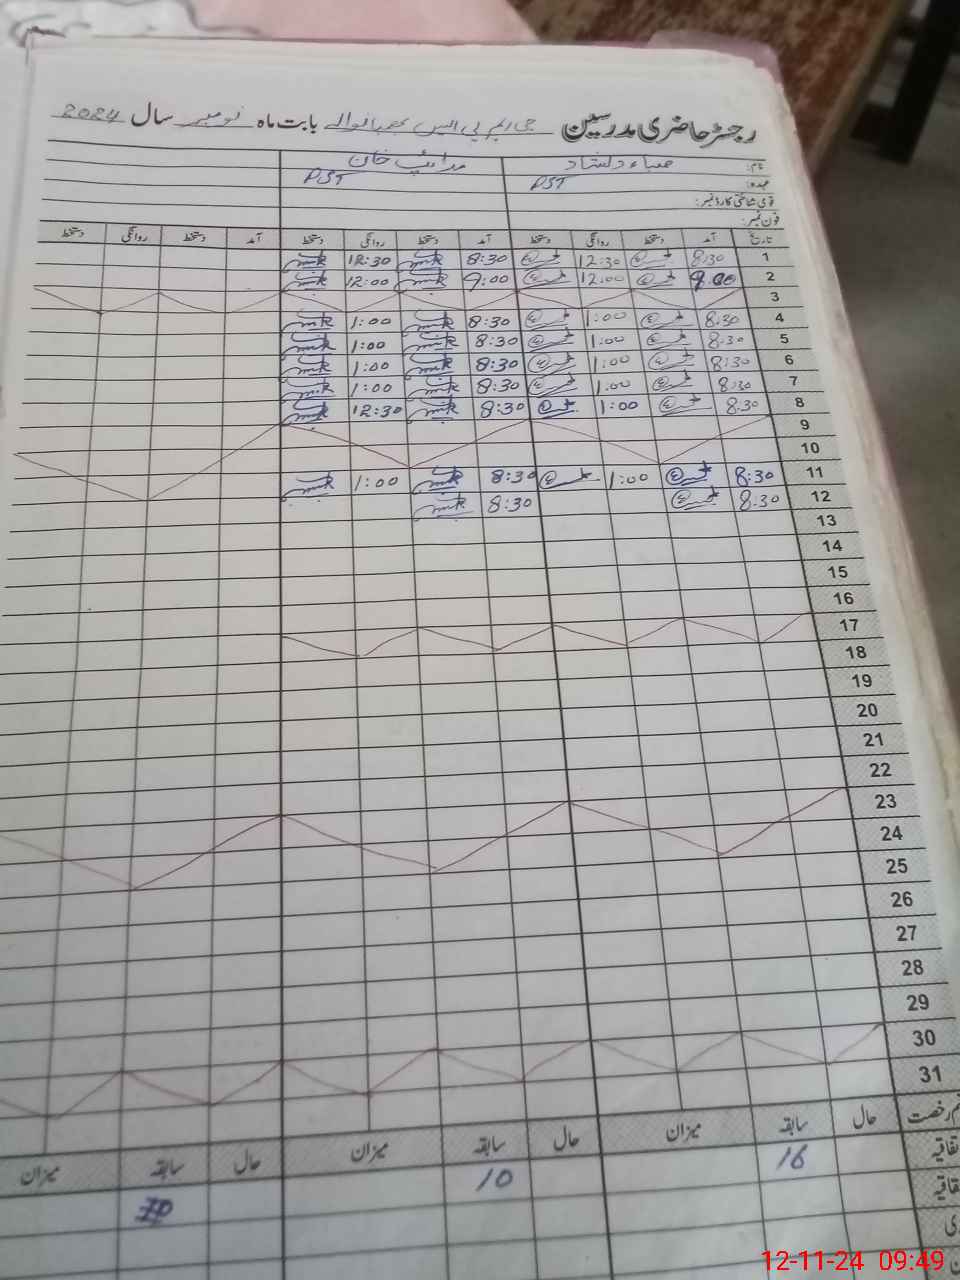 رجسٹر حاضری مدرسین جی ایم پی ایس بابت ماہ نومبر سال 2024
نام: صباء دلشاد خان
عہدہ: PST PST
قومی شناختی کارڈ نمبر:
فون نمبر:
تاریخ آمد دستخط روانگی دستخط آمد دستخط روانگی دستخط آمد دستخط روانگی دستخط
1 8:30 12:30 8:30 12:30
2 9.00 12:00 9:00 12:00
3
4 8:30 1:00 8:30 1:00
5 8:30 1:00 8:30 1:00
6 8:30 1:00 8:30 1:00
7 8:30 1:00 8:30 1:00
8 8:30 1:00 8:30 12:30
9
10
11 8:30 1:00 8:30 1:00
12 8:30 8:30
13
14
15
16
17
18
19
20
21
22
23
24
25
26
27
28
29
30
31
رخصت حال سابقہ میزان حال سابقہ میزان حال سابقہ میزان
16 10
12-11-24 09:49